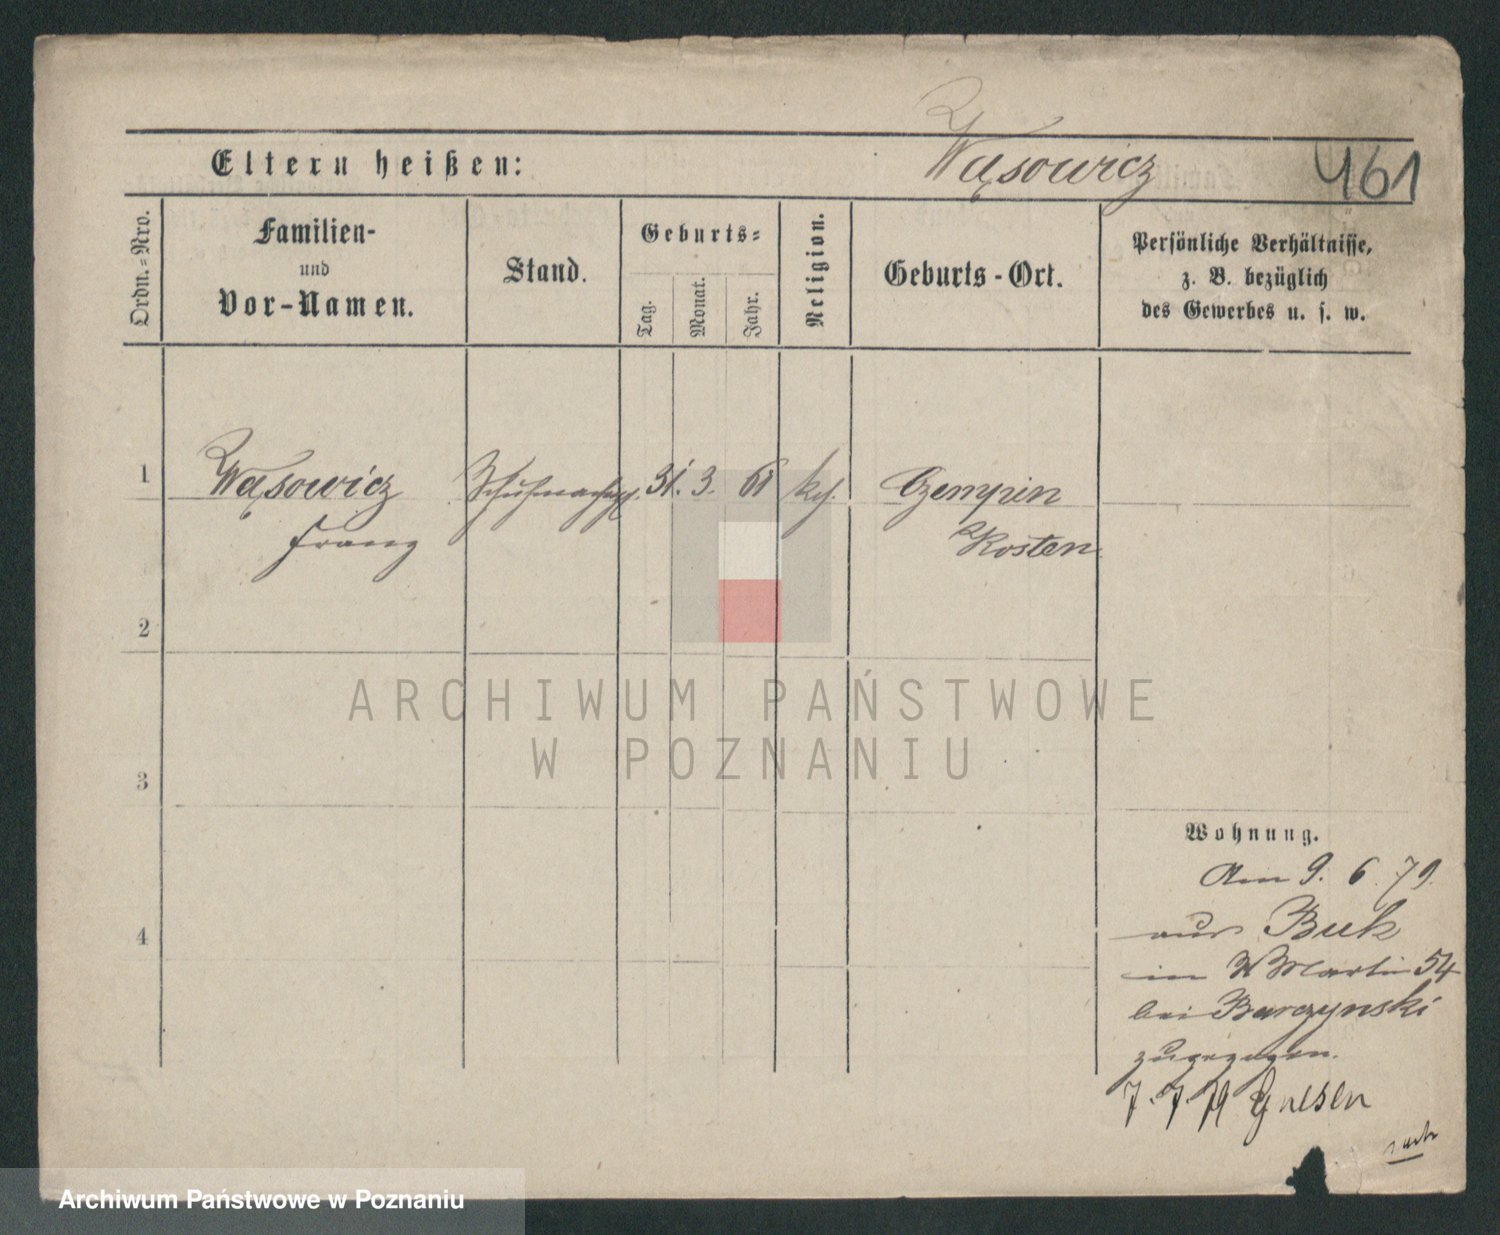 Wąsowicz
461
Eltern heißen:
Ordn.=Nro.
Familien-
und
Vor-Namen.
Stand.
Geburts=
Tag.
Monat.
Jahr.
Religion.
Geburts-Ort.
Persönliche Verhältnisse,
z. B. bezüglich
des Gewerbes u. s. w.
1 Wąsowicz 31. 3. 61 kth. Czempin
Franz Kosten
2
3
4
Wohnung.
Am 9. 6. 79.
aus Buk
in Martin 54
bei Barczynski
zugezogen.
7. 7. 79 Gnesen
ARCHIWUM PAŃSTWOWE
W POZNANIU
Archiwum Państwowe w Poznaniu